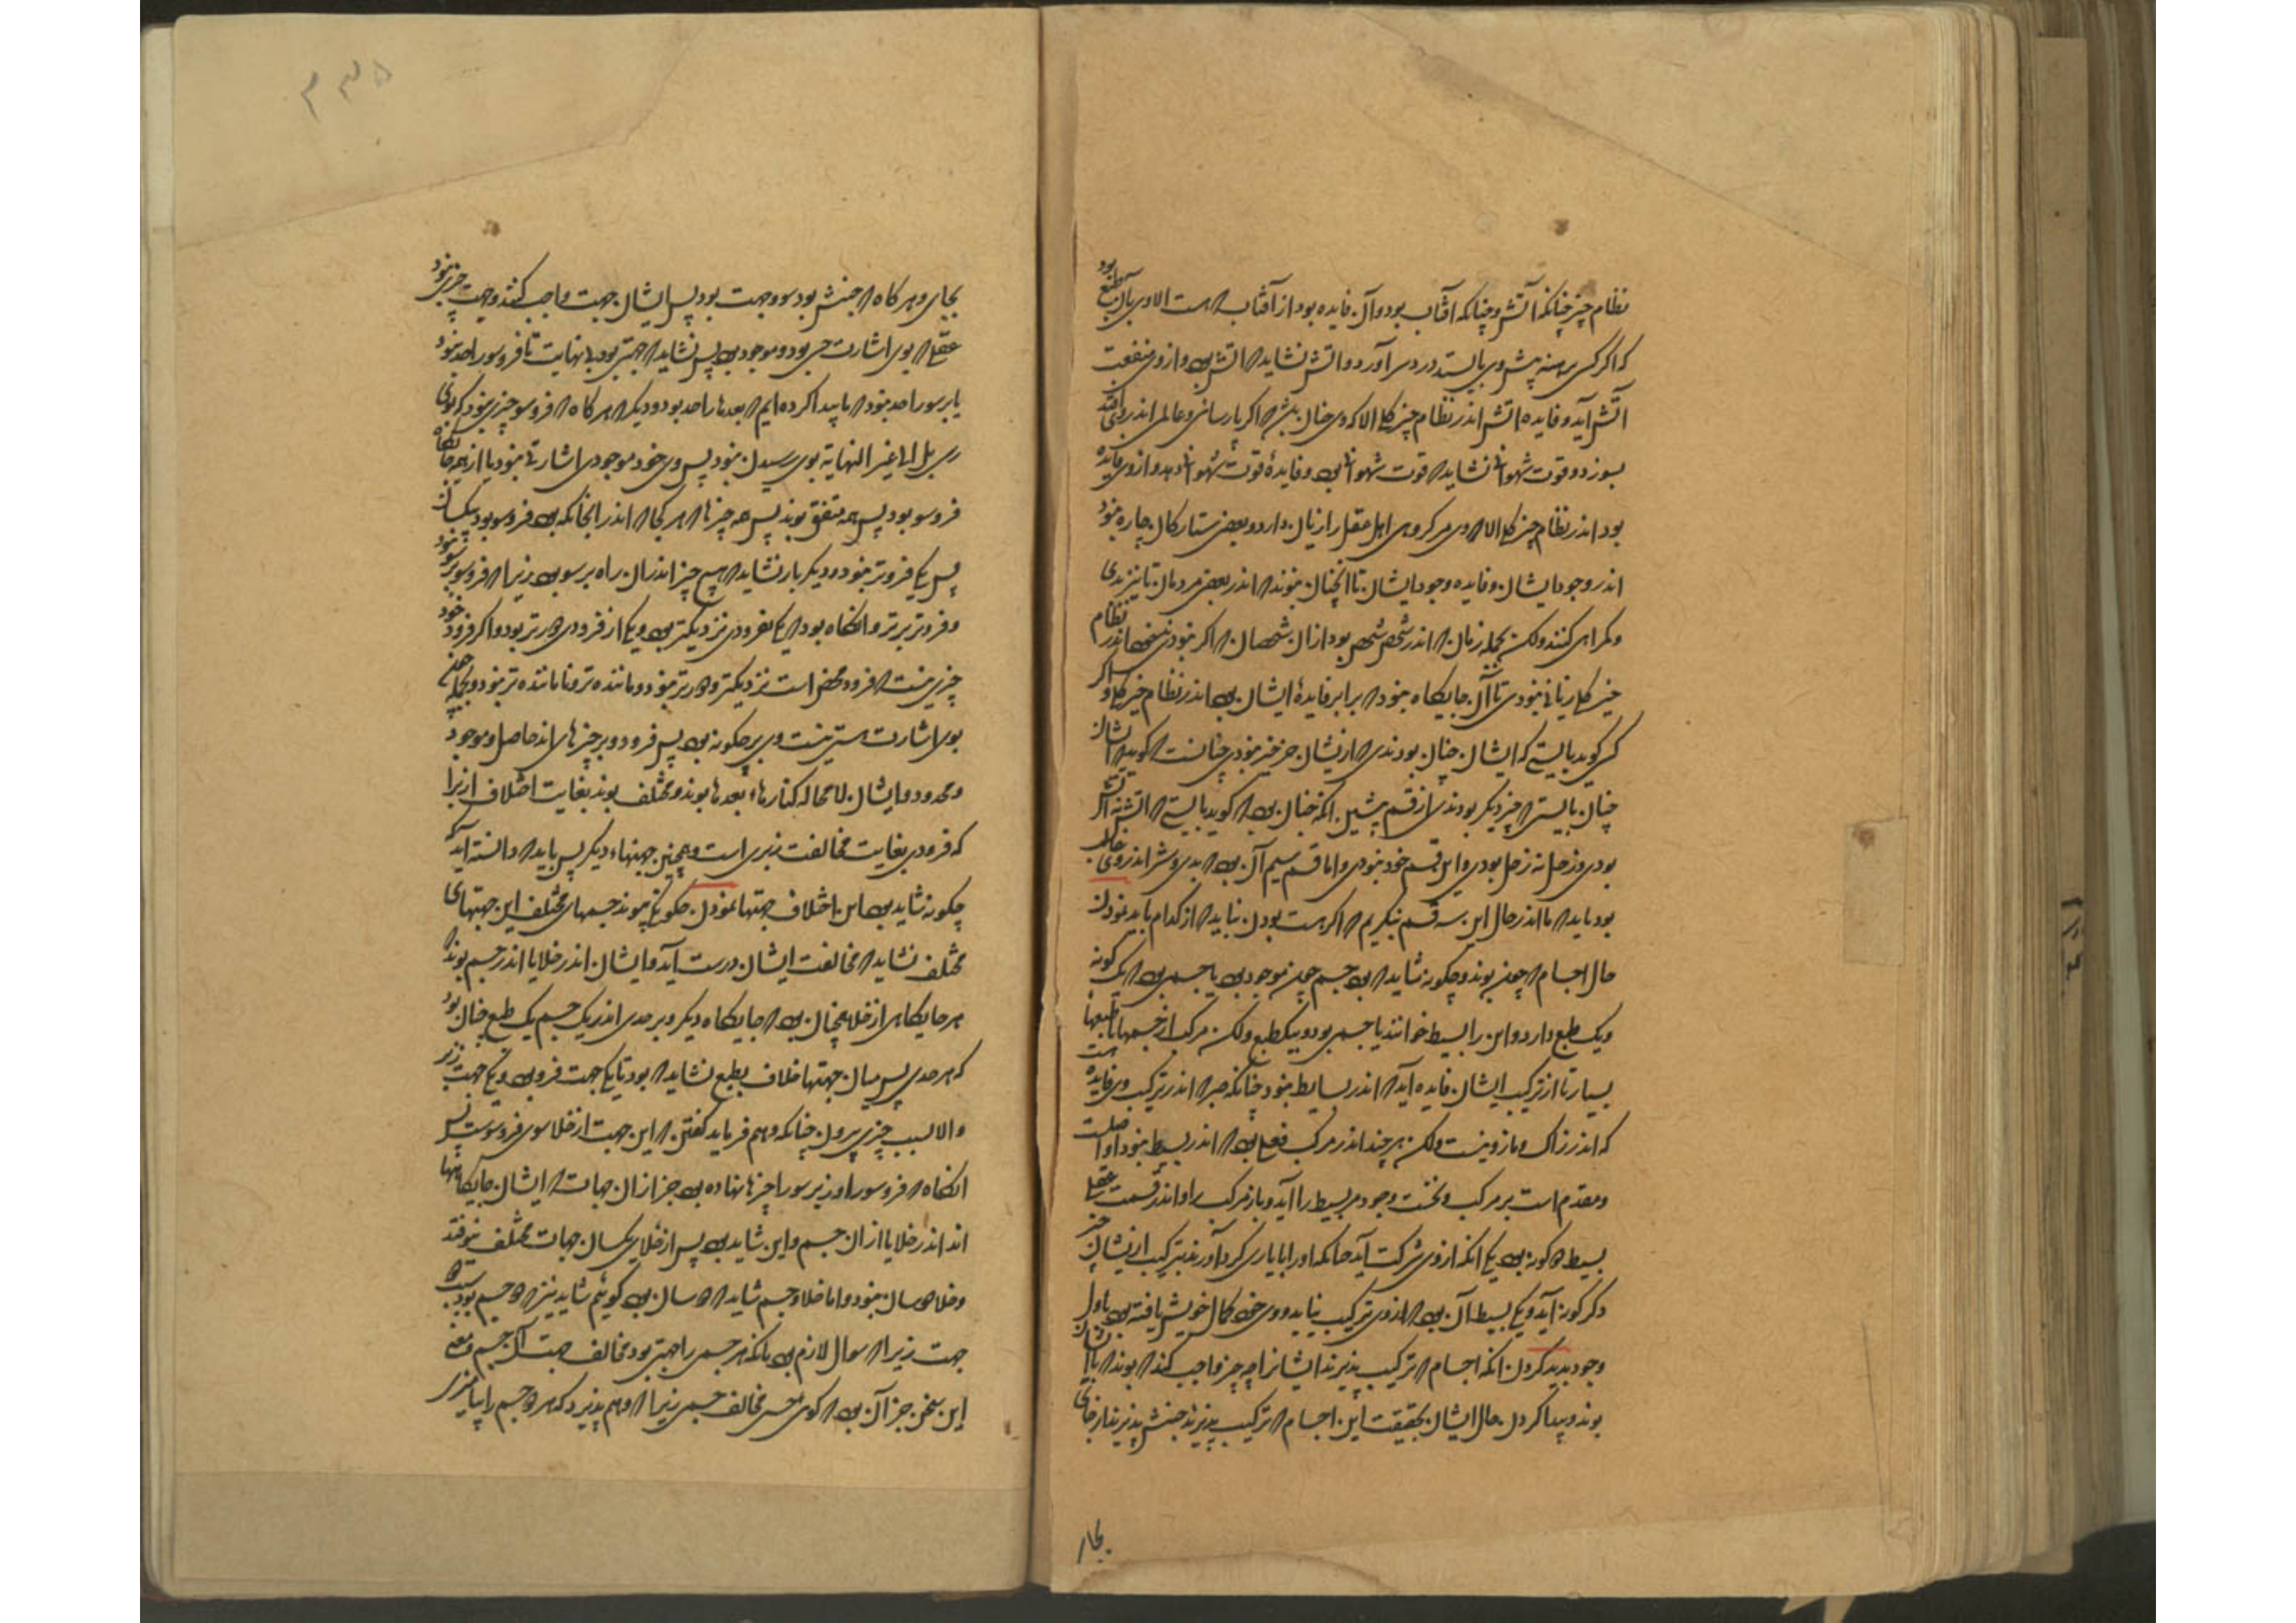 نظام چیز چنانکه آتش و چنانکه آفتاب بود و آن فایده بود از آفتاب که هست الا وی بآن بطبع بود
که اگر کسی برهنه پیش وی بایستد درد سر آورد و آتش نشاید که آتش بود و از وی منفعت
آتش آید و فایده آتش اندر نظام چیز کلی الا که وی چنان بود که اگر پارسائی و عالمی اندر وی افتد
بسوزد و قوت شهوانی نشاید که قوت شهوانی بود و فایدهٔ قوت شهوانی دهد و از وی فایده
بود اندر نظام چیز کلی الا که وی مر گروهی اهل عقل را زیان دارد و بعضی ستارگان چاره نبود
اندر وجود ایشان و فایده وجود ایشان تا آنچنان نبوند که اندر بعضی مردمان
و گمراهی کنند ولکن بجمله زیان که اندر شخص شخص بود از آن شخصان که اگر نبودندی اندر نظام
خیر کلی زیانی نبودی تا آن جایگاه نبود که برابر فایدهٔ ایشان بود اندر نظام خیر کلی و اگر
کسی گوید بایستی که ایشان چنان بودندی که از ایشان جز خیر نبودی چنانست که گوید که ایشان
چنان بایستی که چیز دیگر بودندی از قسم پیشین آنکه چنان بود که گوید بایستی که آتش نه آتش
بودی و زحل نه زحل بودی و این قسم خود نبودی و اما قسم سیم آن بود که بدی و شر اندر وی غالب
بود باید که ما اندر حال این سه قسم نگریم که اگر هست بودن نباید که از کدام باید نمودن
حال اجسام که چون بوند و چگونه شاید که بود جسم چون موجود بود یا جسمی بود که یک گونه
و یک طبع دارد و این را بسیط خوانند یا جسمی بود و بیک طبع ولکن مرکب از جسمها با طبعها
بسیار تا از ترکیب ایشان فایده آید که اندر بسایط نبود چنانکه حبر که اندر ترکیب وی فایده هست
که اندر زاک و مازو نیست ولکن هر چند اندر مرکب فعلی بود که اندر بسیط نبود او اصلست
و مقدم است بر مرکب و نخست وجود مر بسیط را آید و باز مرکب را و اندر قسمت عقلی
بسیط دو گونه بود یکی آنکه از وی شرکت آید چنانکه او را با یاری گرد آورند بترکیب از ایشان چیز
دگر گونه آید و یکی بسیط آن بود که از وی ترکیب نیاید و وی خود کمال خویش یافته بود باول
وجود پدید کردن آنکه اجسام که ترکیب پذیرند ایشانرا چه چیز واجب کند که بوند تا ایشان
بوند و پیدا کردن حال ایشان بحقیقت این اجسام که ترکیب پذیرند جنبش پذیرند از جای
بجای
بجای و هر گاه که جنبش بود سو و جهت بود پس ایشان جهت واجب کنند و جهت چیزی نبود
عقلی که بوی اشارت حسی بود و موجود بود پس نشاید که جهتی بود بی نهایت تا فروسو را حد نبود
یا برسو را حد نبود که ما پیدا کرده ایم که بعدها را حد بود و دیگر که هر گاه که فروسو چیزی نبود که بوی
رسی بل الی غیر النهایة بوی رسیدن نبود پس وی خود موجودی اشارتی نبود یا از هر جایگاه
فروسو بود پس همه متفق بوند پس همه چیزها که هر کجا که اندر آنجا که بود فروسو بود یکسان
پس یکی فروتر نبود و دیگر بار نشاید که هیچ چیز اندر آن راه برسو بود زیرا که فروسو برسو نبود
و فروتر برتر و آنگاه بود که یکی بفرودی نزدیکتر بود و یکی از فرودی دورتر بود و اگر فرود خود
چیزی نیست که فرود محض است نزدیکتر و دورتر نبود و ماننده تر و ناماننده تر نبود و بجمله چیزی
بوی اشارت حسی نیست وی بر چگونه بود پس فرود و بر چیزهای اند حاصل و موجود
و محدود و ایشان لامحاله کنارهاء بعدها بوند و مختلف بوند بغایت اختلاف ازیرا
که فرودی بغایت مخالفت زبری است و همچنین جهتهاء دیگر پس باید که دانسته آید که
چگونه شاید بود این اختلاف جهتها نمودن چگونگی پیوند جسمهای مختلف این جهتهای
مختلف نشاید که مخالفت ایشان درست آید و ایشان اندر خلا یا اندر جسم بوند که
هر جایگاهی از خلا همچنان بود که جایگاه دیگر و هر حدی اندر یک جسم یک طبع چنان بود
که هر حدی پس میان جهتها خلاف بطبع نشاید که بود تا یکی جهت فرو بود و یکی جهت زبر
والا بسبب چیزی بیرون چنانکه وهم فرماید گفتن که این جهت از خلا سوی فروسوست پس
آنگاه که فروسو را و زبرسو را چیزها نهاده بود جز از آن جهات که ایشان جایگاهها
اند اندر خلا یا از آن جسم و این شاید بود پس از خلای یکسان جهات مختلف نیوفتد
و خلا دوسان نبود و اما خلا و جسم شاید که دوسان بود گوئیم شاید نیز که دو جسم بود سبب دو
جهت زیرا که سوال لازم بود بآنکه هر جسمی را جهتی بود مخالف جهت آن جسم و معنی
این سخن جز آن بود که گوی جسمی مخالف جسمی زیرا که وهم پذیرد که هر دو جسم را بیامیزی